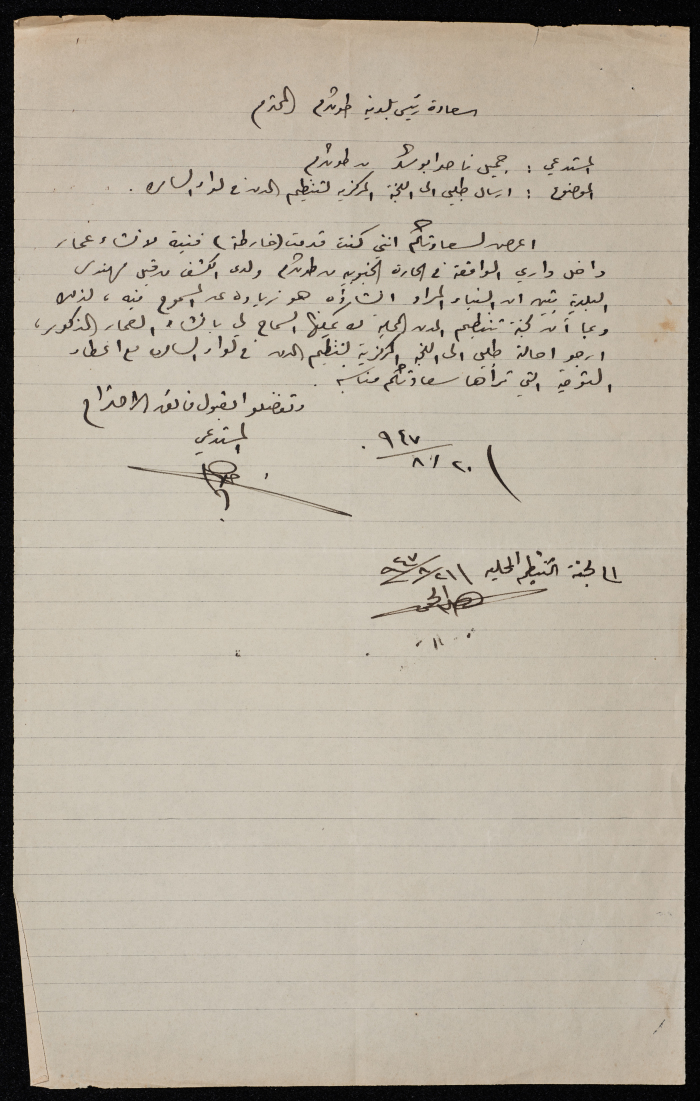 سعادة رئيس بلدية طولكرم المحترم
المستدعي : جميل ناصر ابو من طولكرم
الموضوع : ارسال طلبي الى اللجنة المركزية لتنظيم المدن في لواء السامره .
اعرض لسعادتكم انني كنت قدمت (خارطة) فنية لانشاء عمار
داخل داري الواقعة في الحارة الجنوبيه من طولكرم ولدى الكشف من قبل مهندس
البلدية تبين ان البناء المراد انشاؤه هو زياده عن المسموح فيه ، لذلك
وبما أن لجنة تنظيم المدن المحلية لا يمكنها السماح لي بانشاء العمار المذكور ،
ارجو احالة طلبي الى اللجنة المركزية لتنظيم المدن في لواء السامره مع اعطاء
التوصية التي ترأها سعادتكم مناسبه .
وتفضلوا بقبول فائق الاحترام
المستدعي
٢٠/٨/٩٤٧
الى لجنة التنظيم المحليه ٢١/٨/٩٤٧